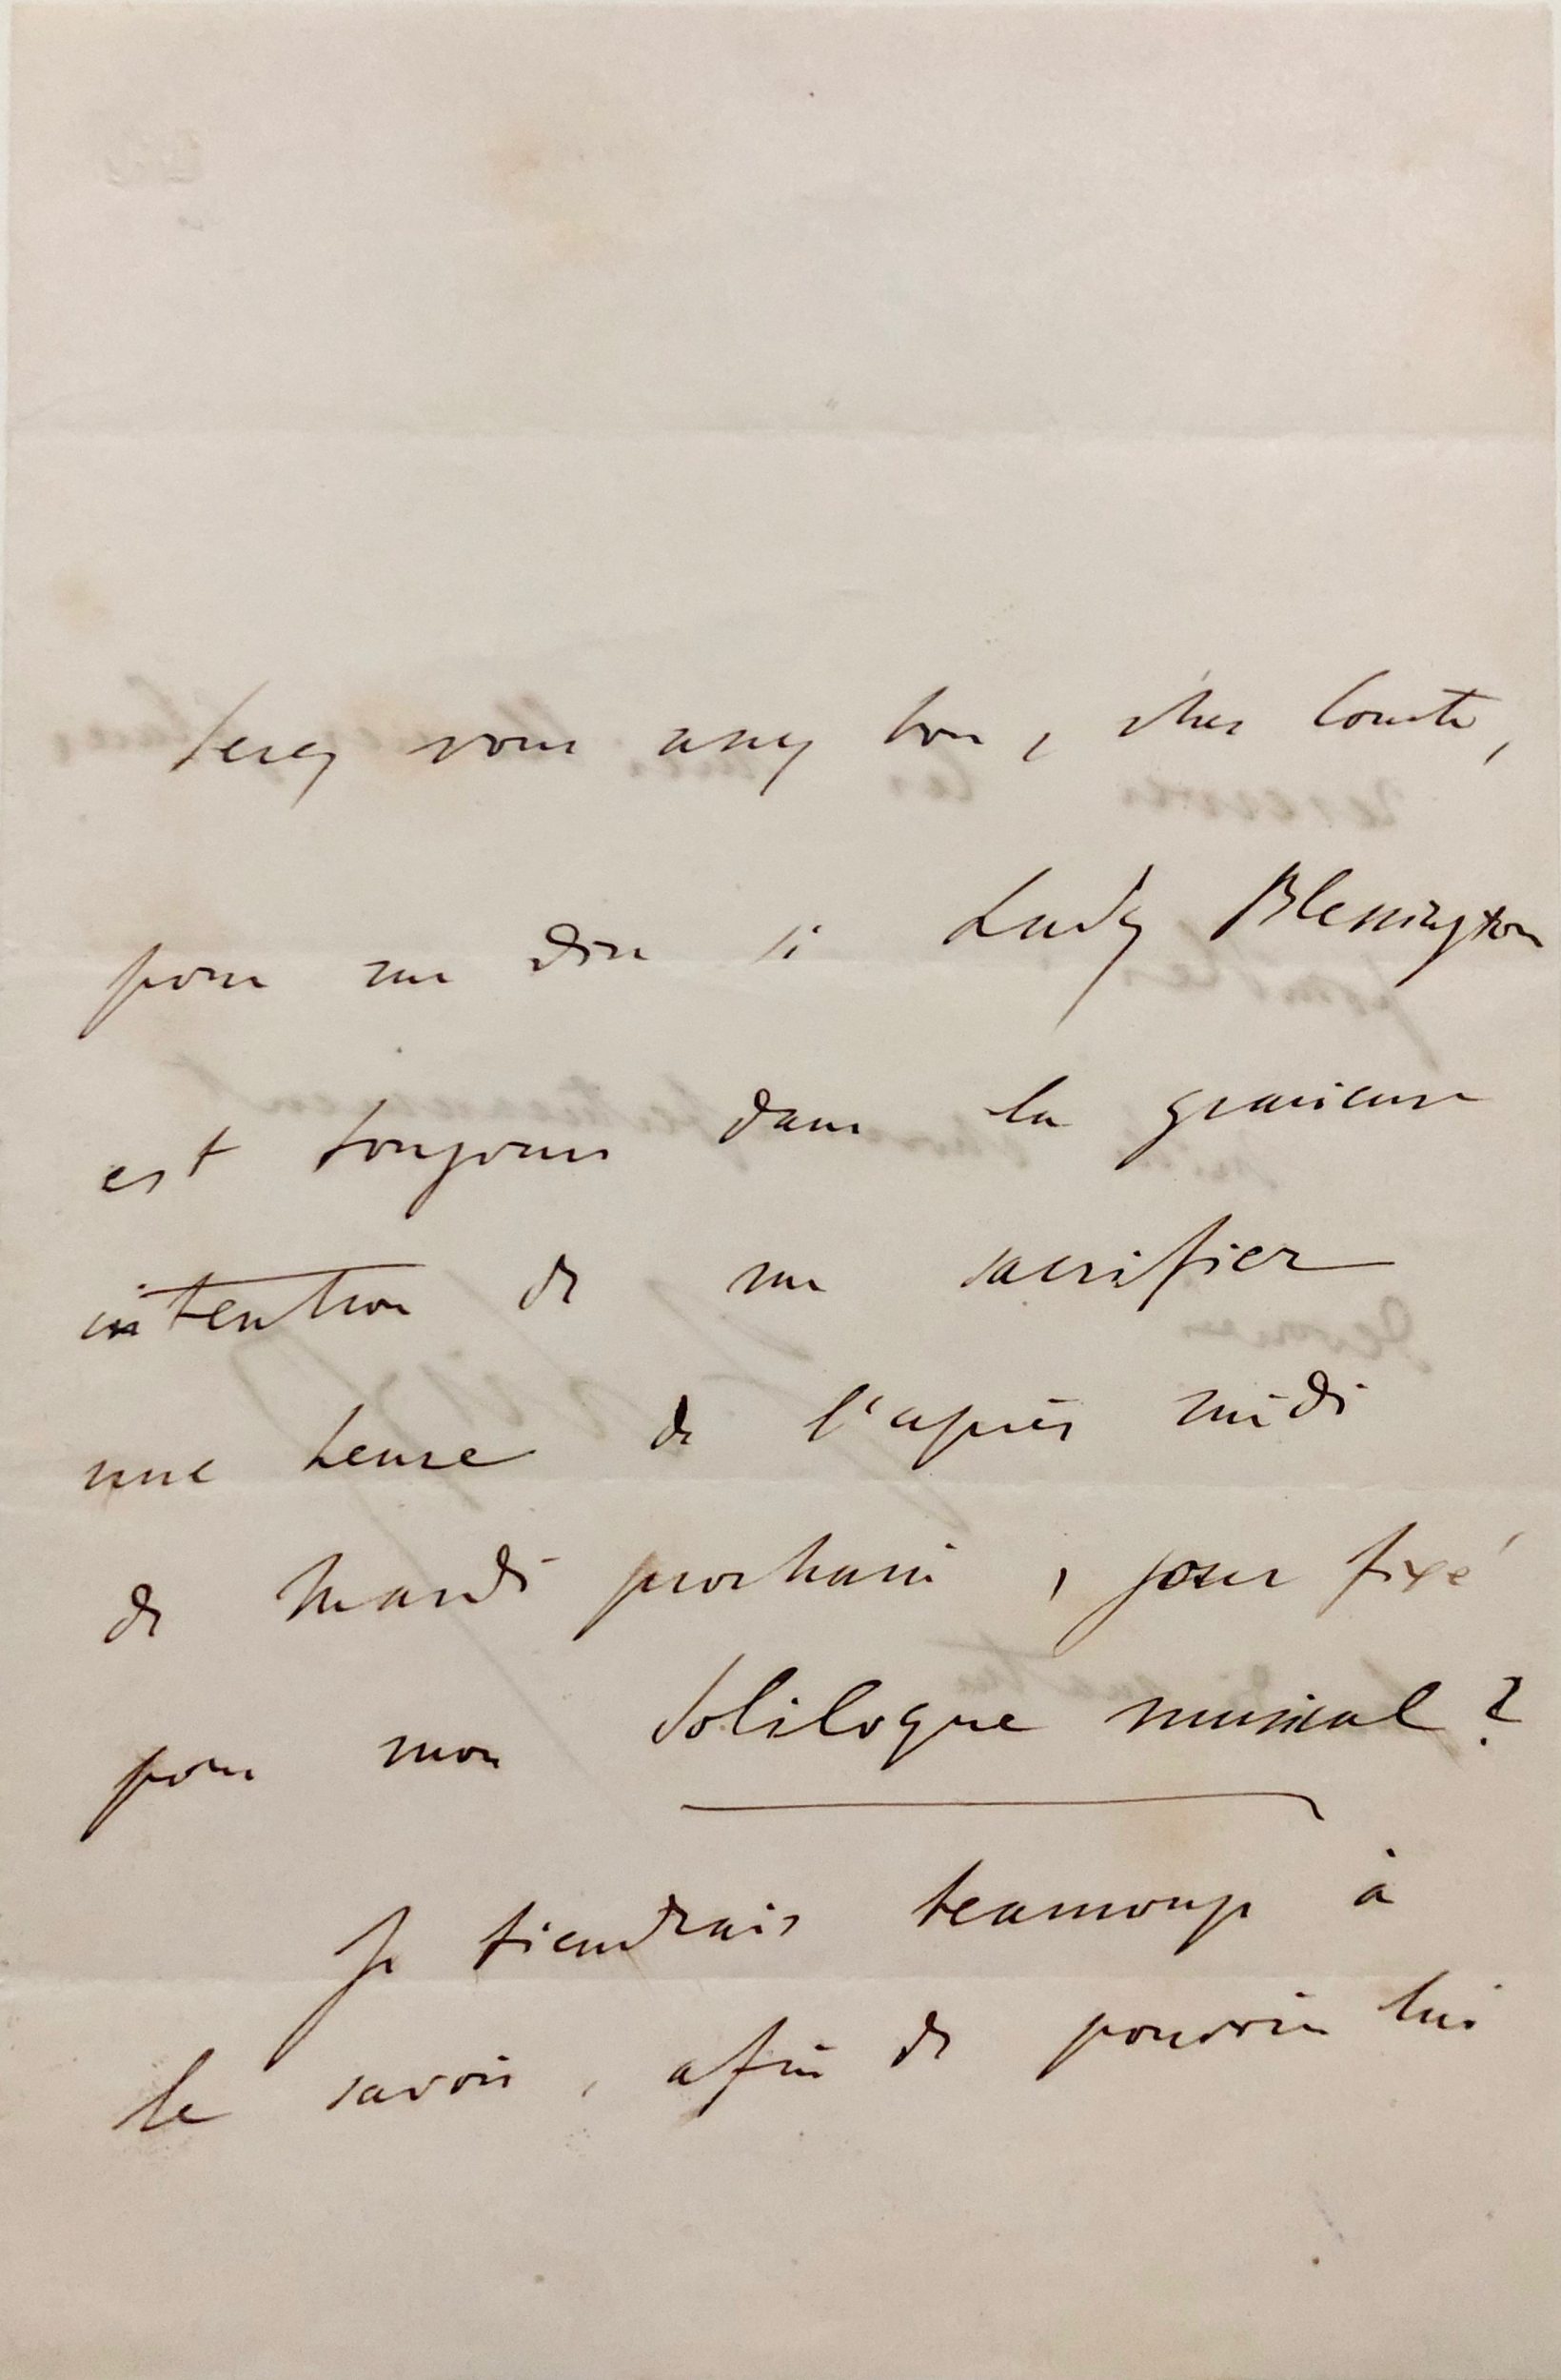 Serez vous assez bon, cher Comte,
pour me dire si Lady Blessington
est toujours dans la gracieuse
intention de me sacrifier
une heure de l'après midi
de Mardi prochain, jour fixé
pour mon Soliloque musical?
Je tiendrais beaucoup à
le savoir, afin de pouvoir lui